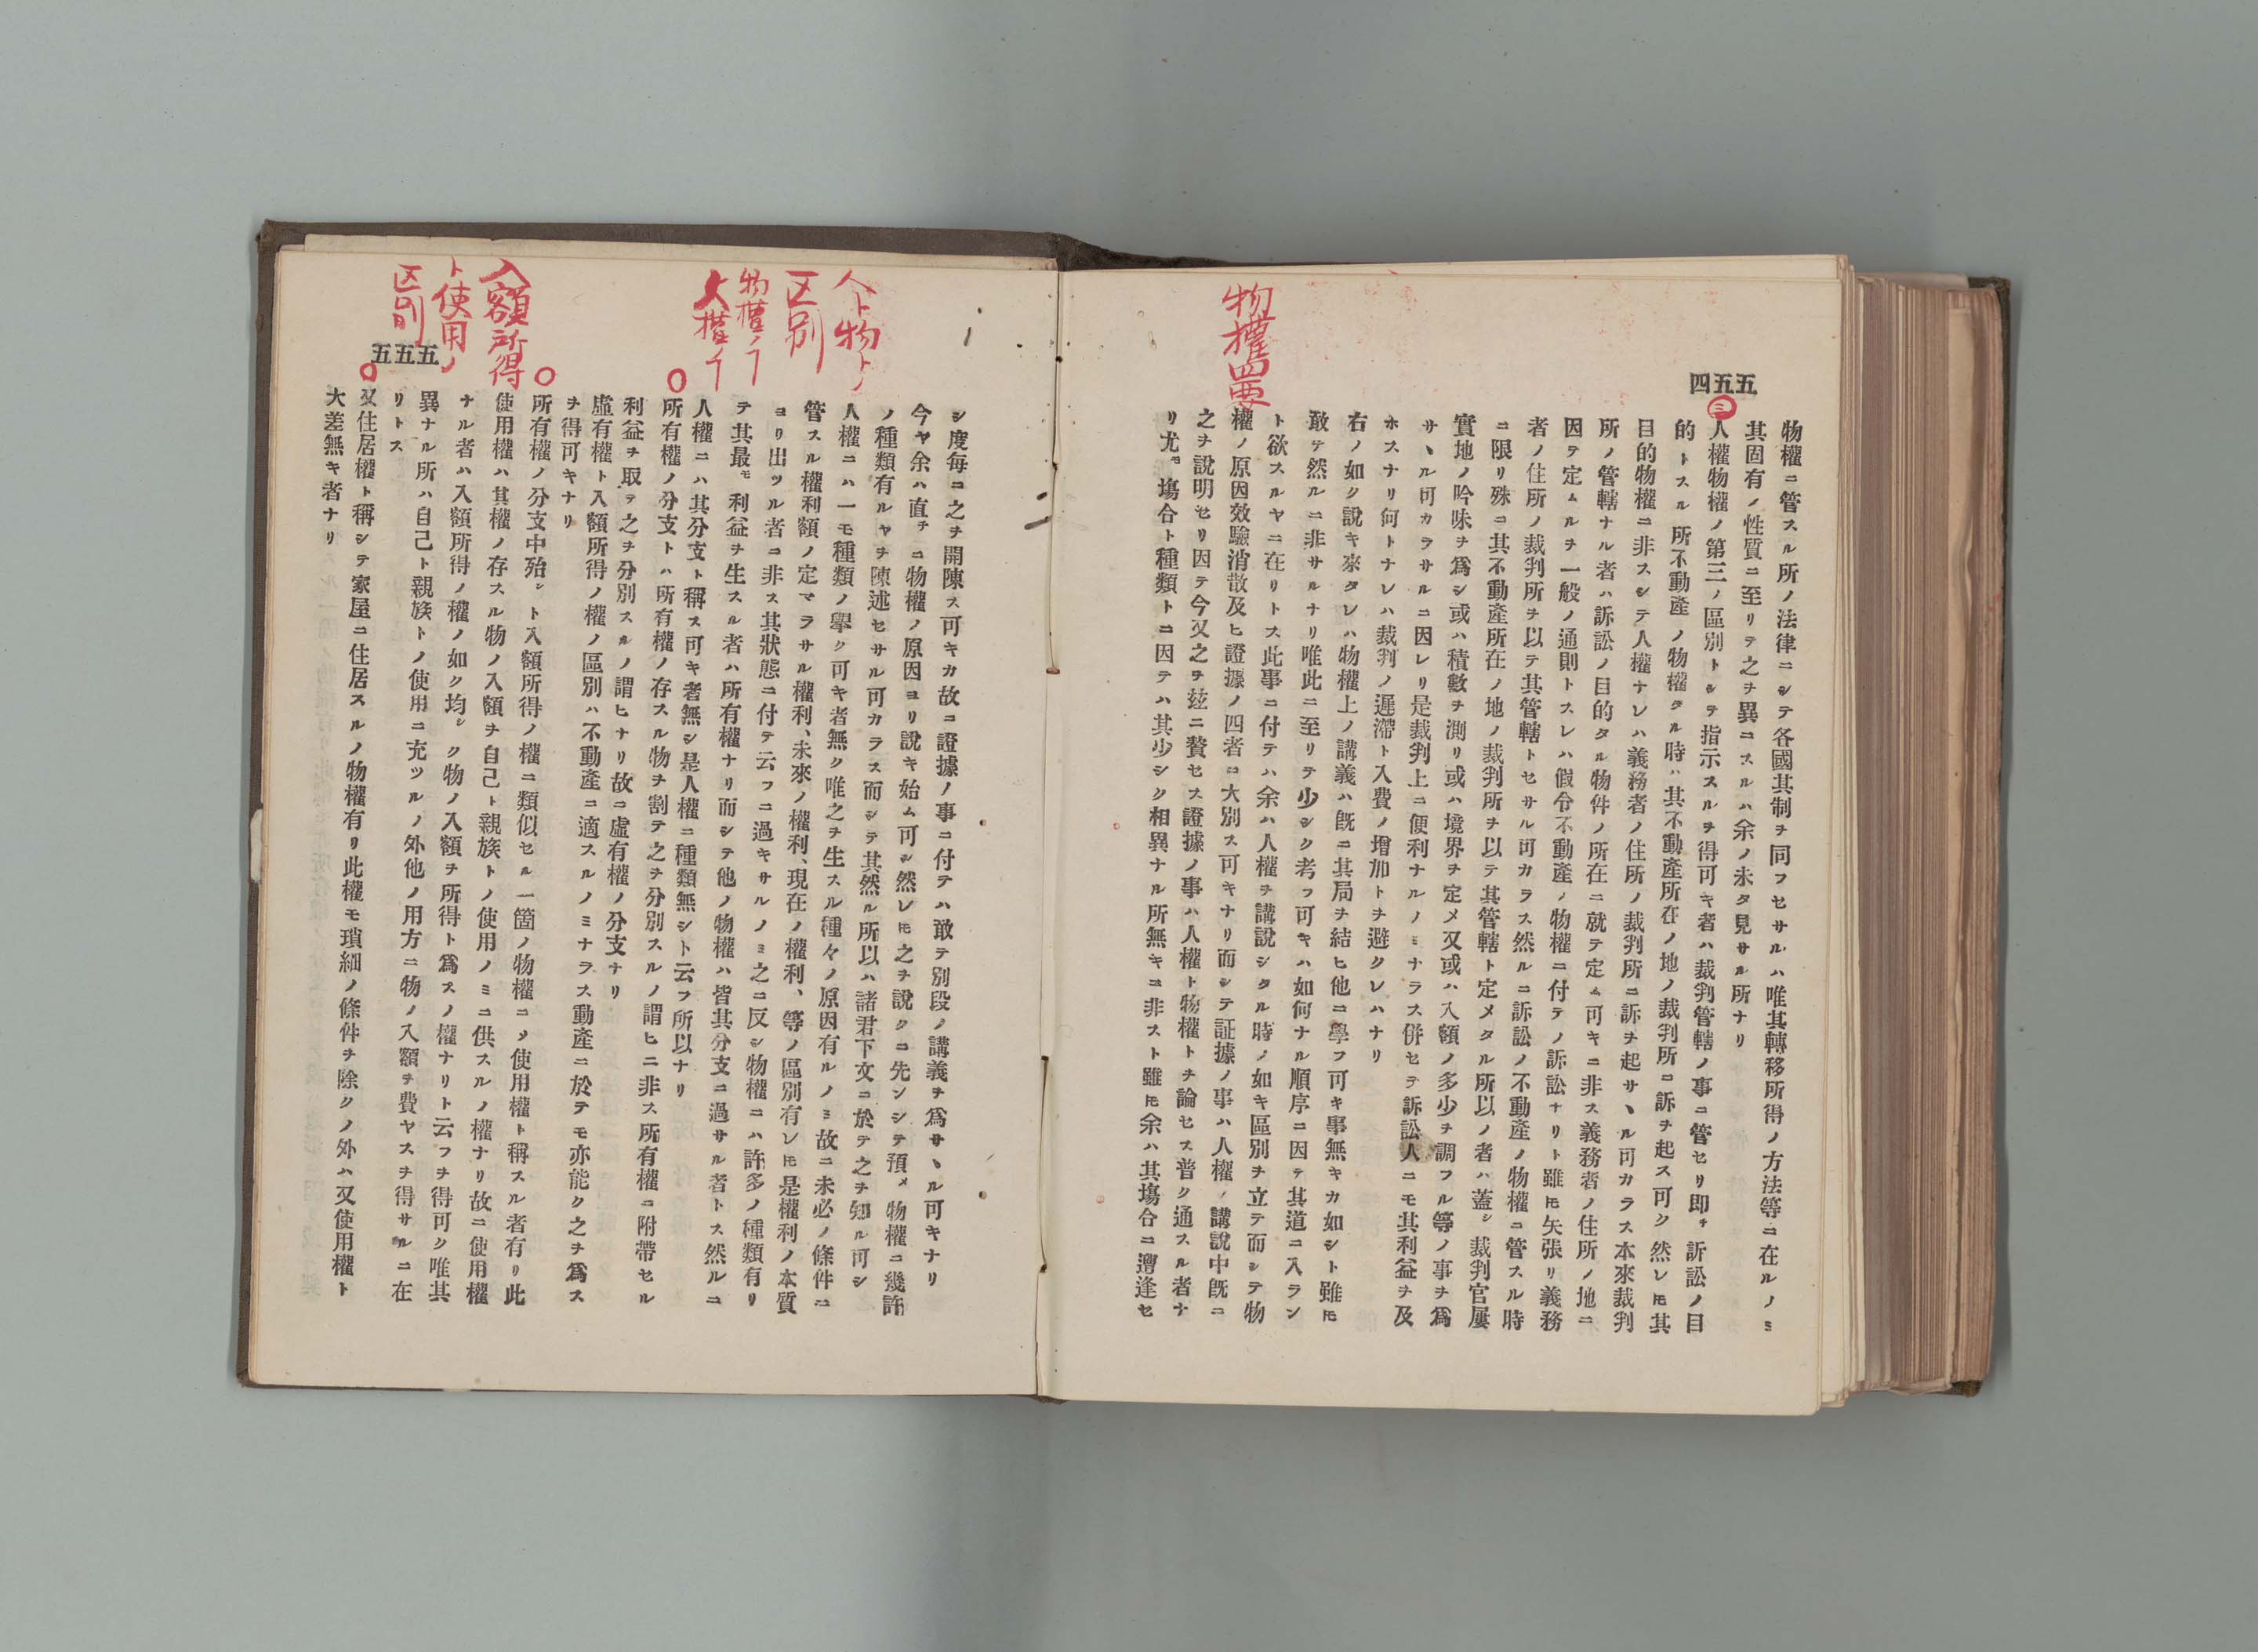 五五四
物權ニ管スル所ノ法律ニシテ各國其制ヲ同フセサルハ唯其轉移所得ノ方法等ニ在ルノミ
其固有ノ性質ニ至リテ之ヲ異ニスルハ余ノ未タ見サル所ナリ
三
人權物權ノ第三ノ區別トシテ指示スルヲ得可キ者ハ裁判管轄ノ事ニ管セリ即チ訴訟ノ目
的トスル所不動產ノ物權タル時ハ其不動產所在ノ地ノ裁判所ニ訴ヲ起ス可ク然レ𪜈其
目的物權ニ非スシテ人權ナレハ義務者ノ住所ノ裁判所ニ訴ヲ起サヽル可カラス本來裁判
所ノ管轄ナル者ハ訴訟ノ目的タル物件ノ所在ニ就テ定ム可キニ非ス義務者ノ住所ノ地ニ
因テ定ムルヲ一般ノ通則トスレハ假令不動產ノ物權ニ付テノ訴訟ナリト雖𪜈矢張リ義務
者ノ住所ノ裁判所ヲ以テ其管轄トセサル可カラス然ルニ訴訟ノ不動產ノ物權ニ管スル時
ニ限リ殊ニ其不動產所在ノ地ノ裁判所ヲ以テ其管轄ト定メタル所以ノ者ハ蓋シ裁判官屢
實地ノ吟味ヲ爲シ或ハ積數ヲ測リ或ハ境界ヲ定メ又或ハ入額ノ多少ヲ調フル等ノ事ヲ爲
サヽル可カラサルニ因レリ是裁判上ニ便利ナルノミナラス併セテ訴訟人ニモ其利益ヲ及
ホスナリ何トナレハ裁判ノ遲滯ト入費ノ增加トヲ避クレハナリ
右ノ如ク說キ來タレハ物權上ノ講義ハ旣ニ其局ヲ結ヒ他ニ學フ可キ事無キカ如シト雖𪜈
敢テ然ルニ非サルナリ唯此ニ至リテ少シク考フ可キハ如何ナル順序ニ因テ其道ニ入ラン
ト欲スルヤニ在リトス此事ニ付テハ余ハ人權ヲ講說シタル時ノ如キ區別ヲ立テ而シテ物
物權四要
權ノ原因效驗消散及ヒ證據ノ四者ニ大別ス可キナリ而シテ証據ノ事ハ人權ノ講說中旣ニ
之ヲ說明セリ因テ今又之ヲ玆ニ贅セス證據ノ事ハ人權ト物權トヲ論セス普ク通スル者ナ
リ尤モ塲合ト種類トニ因テハ其少シク相異ナル所無キニ非スト雖𪜈余ハ其塲合ニ遭逢セ
シ度每ニ之ヲ開陳ス可キカ故ニ證據ノ事ニ付テハ敢テ別段ノ講義ヲ爲サヽル可キナリ
今ヤ余ハ直チニ物權ノ原因ヨリ說キ始ム可シ然レ𪜈之ヲ說クニ先ンシテ預メ物權ニ幾許
ノ種類有ルヤヲ陳述セサル可カラス而シテ其然ル所以ハ諸君下文ニ於テ之ヲ知ル可シ
人ト物トノ
区別
人權ニハ一モ種類ノ擧ク可キ者無ク唯之ヲ生スル種々ノ原因有ルノミ故ニ未必ノ條件ニ
管スル權利額ノ定マラサル權利、未來ノ權利、現在ノ權利、等ノ區別有レ𪜈是權利ノ本質
ヨリ出ツル者ニ非ス其狀態ニ付テ云フニ過キサルノミ之ニ反シ物權ニハ許多ノ種類有リ
テ其最モ利益ヲ生スル者ハ所有權ナリ而シテ他ノ物權ハ皆其分支ニ過サル者トス然ルニ
人權ニハ其分支ト稱ス可キ者無シ是人權ニ種類無シト云フ所以ナリ
所有權ノ分支トハ所有權ノ存スル物ヲ割テ之ヲ分別スルノ謂ヒニ非ス所有權ニ附帶セル
利益ヲ取テ之ヲ分別スルノ謂ヒナリ故ニ虛有權ノ分支ナリ
虛有權ト入額所得ノ權ノ區別ハ不動產ニ適スルノミナラス動產ニ於テモ亦能ク之ヲ爲ス
ヲ得可キナリ
入額所得
ト使用ノ
区別
所有權ノ分支中殆ント入額所得ノ權ニ類似セル一箇ノ物權ニソ使用權ト稱スル者有リ此
使用權ハ其權ノ存スル物ノ入額ヲ自己ト親族トノ使用ノミニ供スルノ權ナリ故ニ使用權
ナル者ハ入額所得ノ權ノ如ク均シク物ノ入額ヲ所得ト爲スノ權ナリト云フヲ得可ク唯其
異ナル所ハ自己ト親族トノ使用ニ充ツルノ外他ノ用方ニ物ノ入額ヲ費ヤスヲ得サルニ在
リトス
五五五
又住居權ト稱シテ家屋ニ住居スルノ物權有リ此權モ瑣細ノ條件ヲ除クノ外ハ又使用權ト
大差無キ者ナリ